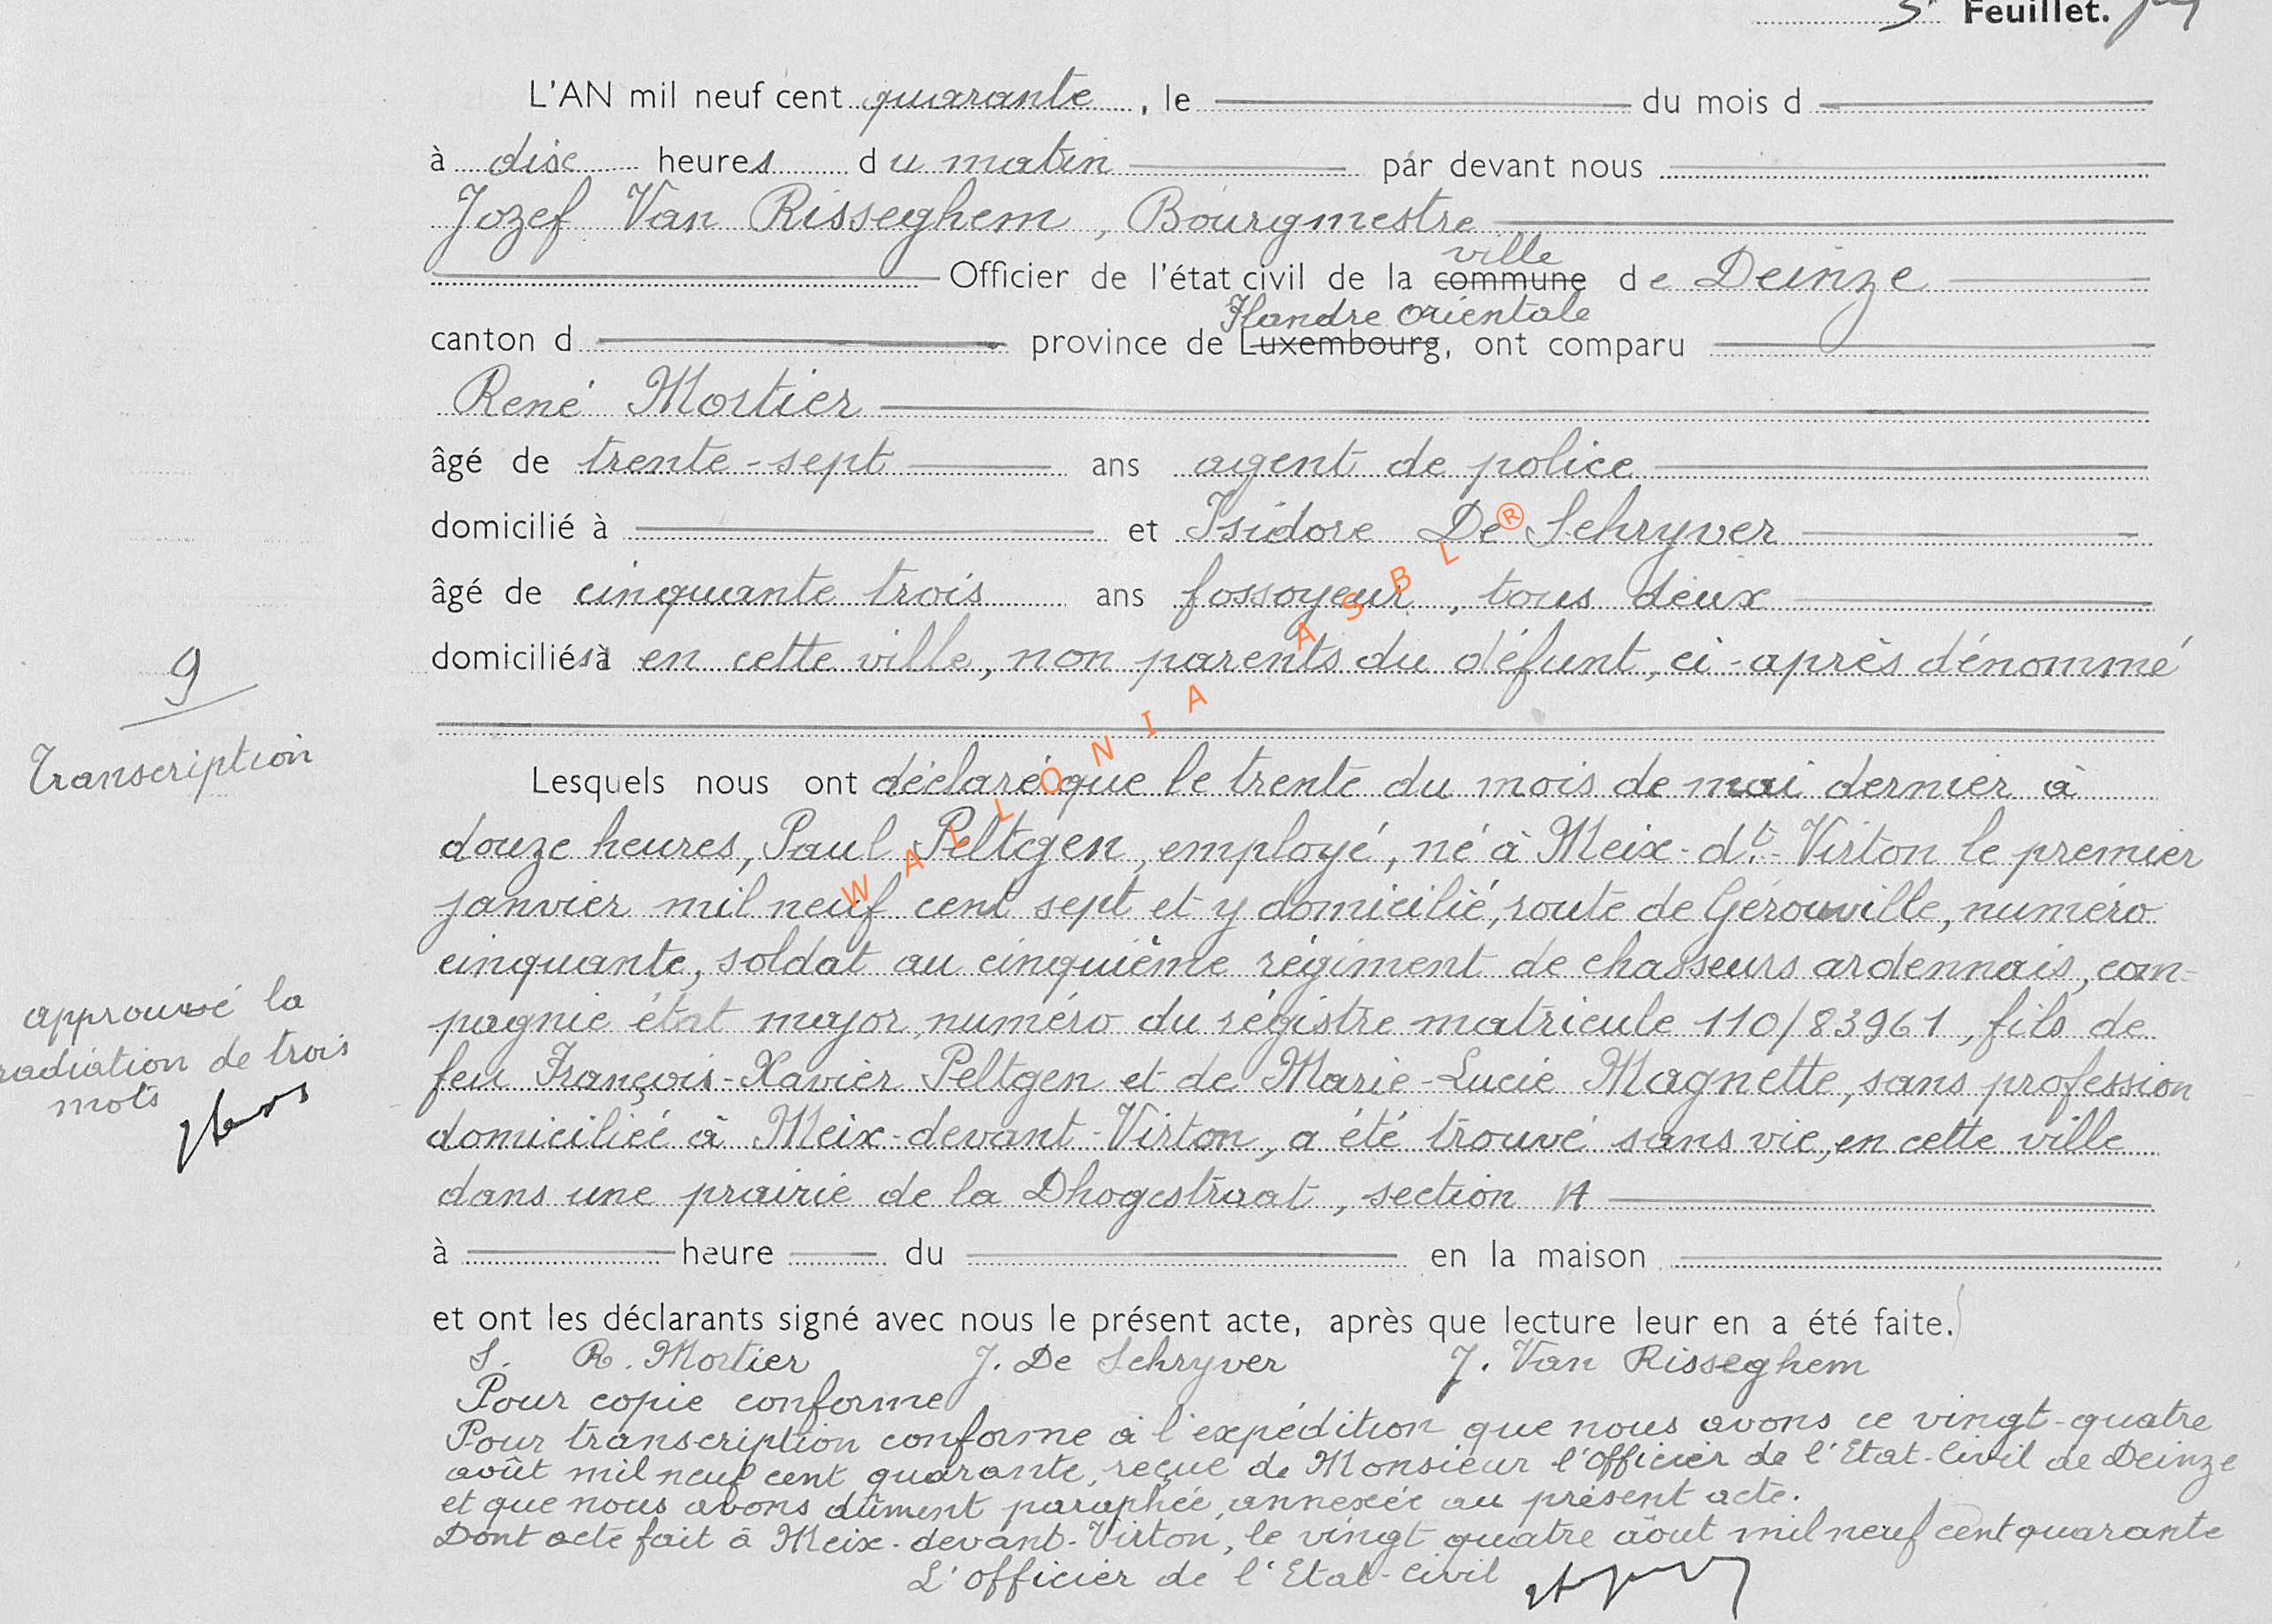 5e Feuillet.
L'AN mil neuf cent quarante, le du mois d
à dix heures du matin par devant nous
Jozef Van Risseghem, Bourgmestre
ville
Officier de l'état civil de la commune de Deinze
Flandre Orientale
canton d province de Luxembourg, ont comparu
René Mortier
âgé de trente-sept ans agent de police
domicilié à et Isidore De Schryver
âgé de cinquante trois ans fossoyeur, tous deux
domiciliés à en cette ville, non parents du défunt, ci-après dénommé
9
Transcription
Lesquels nous ont déclaré que le trente du mois de mai dernier à
douze heures, Paul Peltgen, employé, né à Meix-dt-Virton le premier
janvier mil neuf cent sept et y domicilié, route de Gérouville, numéro
cinquante, soldat au cinquième régiment de chasseurs ardennais, com-
pagnie état major, numéro du régistre matricule 110/83961, fils de
feu François-Xavier Peltgen et de Marie-Lucie Magnette, sans profession
domiciliée à Meix-devant-Virton, a été trouvé sans vie, en cette ville
dans une prairie de la Dhogestraat, section A
approuvé la
radiation de trois
mots
à heure du en la maison
et ont les déclarants signé avec nous le présent acte, après que lecture leur en a été faite.
S. R. Mortier J. De Schryver J. Van Risseghem
Pour copie conforme
Pour transcription conforme à l'expédition que nous avons ce vingt-quatre
août mil neuf cent quarante, reçue de Monsieur l'Officier de l'Etat-Civil de Deinze
et que nous avons dûment paraphée, annexée au présent acte.
Dont acte fait à Meix-devant-Virton, le vingt quatre aôut mil neuf cent quarante
L'officier de l'Etat-Civil
WALLONIA ASBL ®